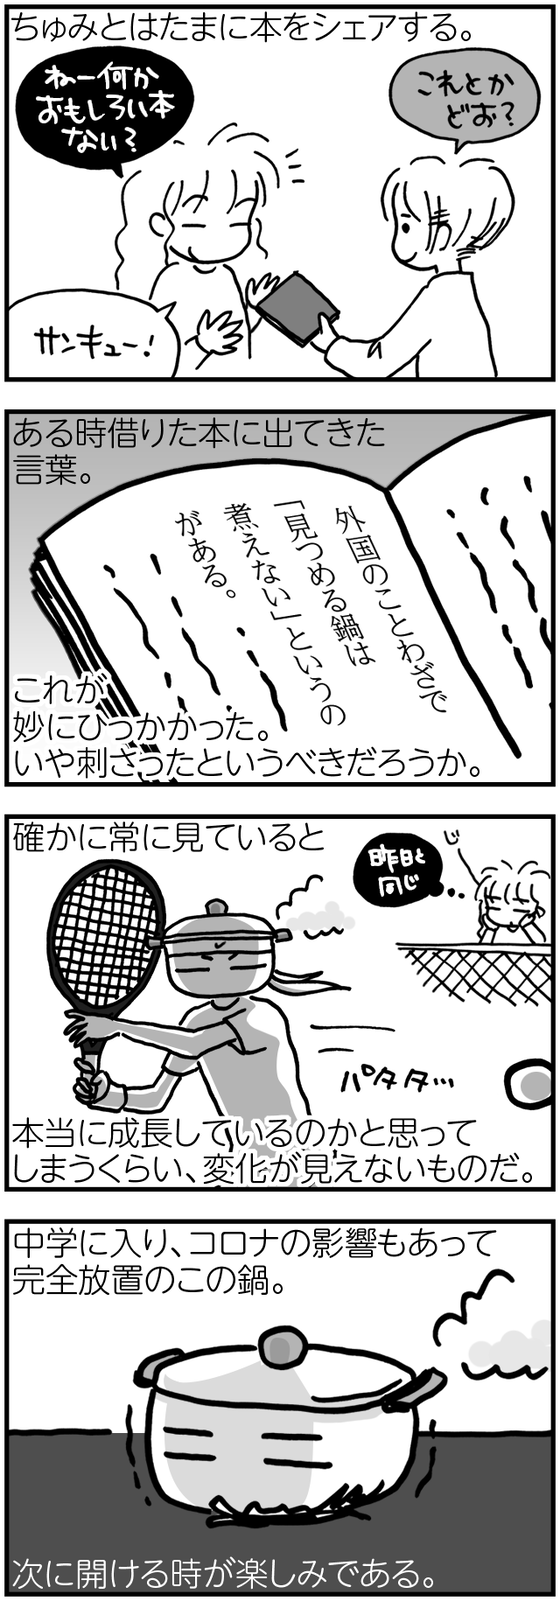 ちゅみとはたまに本をシェアする。
ねー何か
おもしろい本
ない?
これとか
どお?
サンキュー!
ある時借りた本に出てきた
言葉。
外国のことわざで
「見つめる鍋は
煮えない」というの
がある。
これが
妙にひっかかった。
いや刺さったというべきだろうか。
確かに常に見ていると
じー
昨日と
同じ
パタタ…
本当に成長しているのかと思って
しまうくらい、変化が見えないものだ。
中学に入り、コロナの影響もあって
完全放置のこの鍋。
次に開ける時が楽しみである。